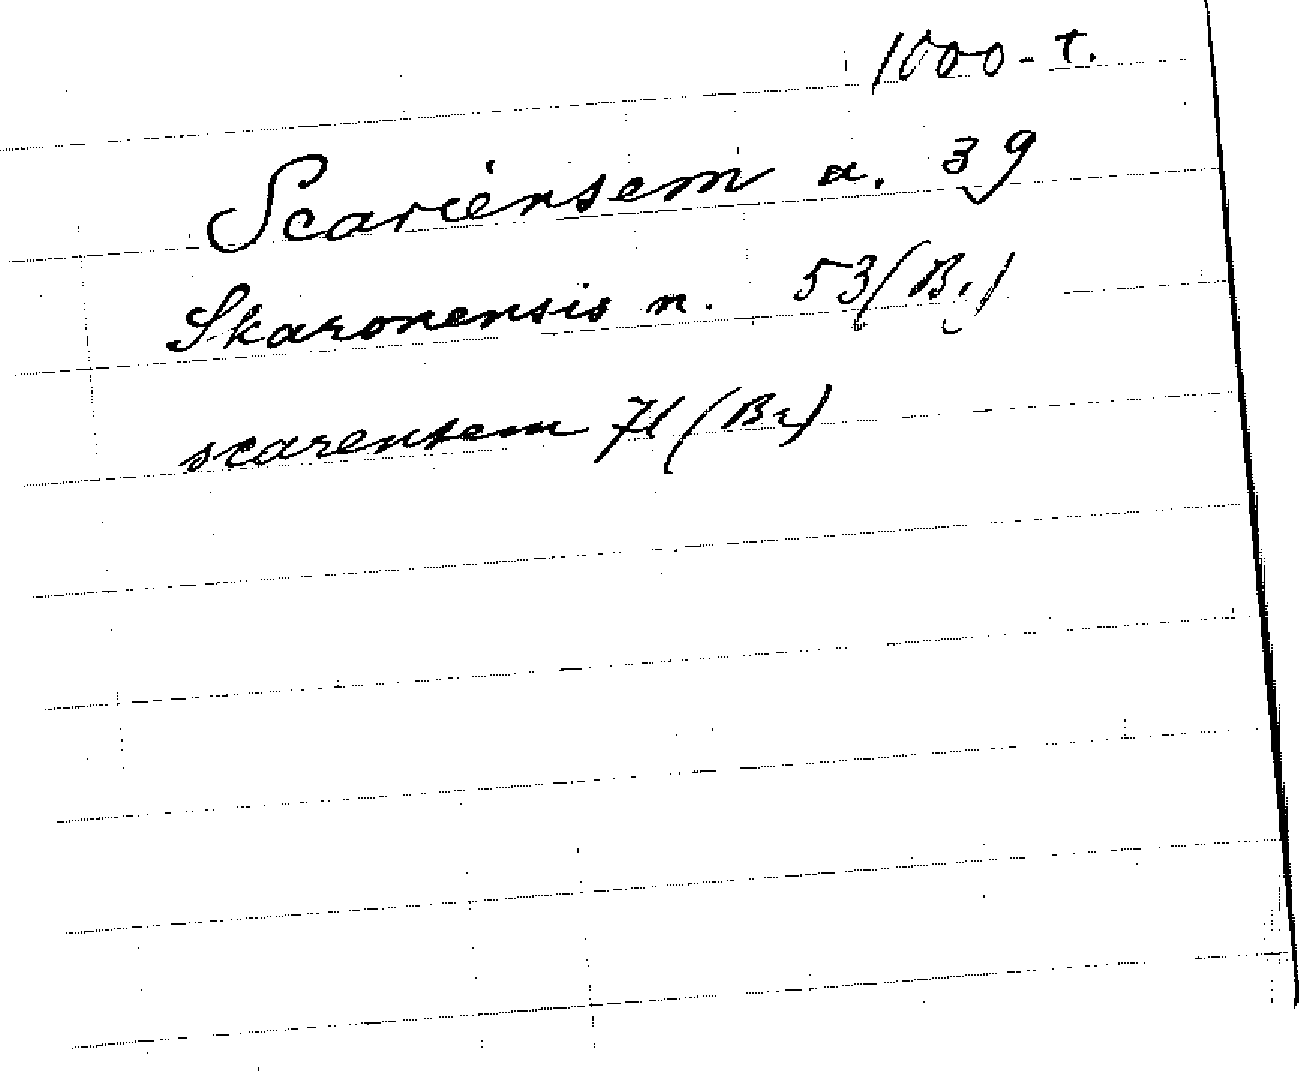 1000-t.
Scariensem a. 39
Skaronensis n. 53 (B1)
scarensem 71 (B2)